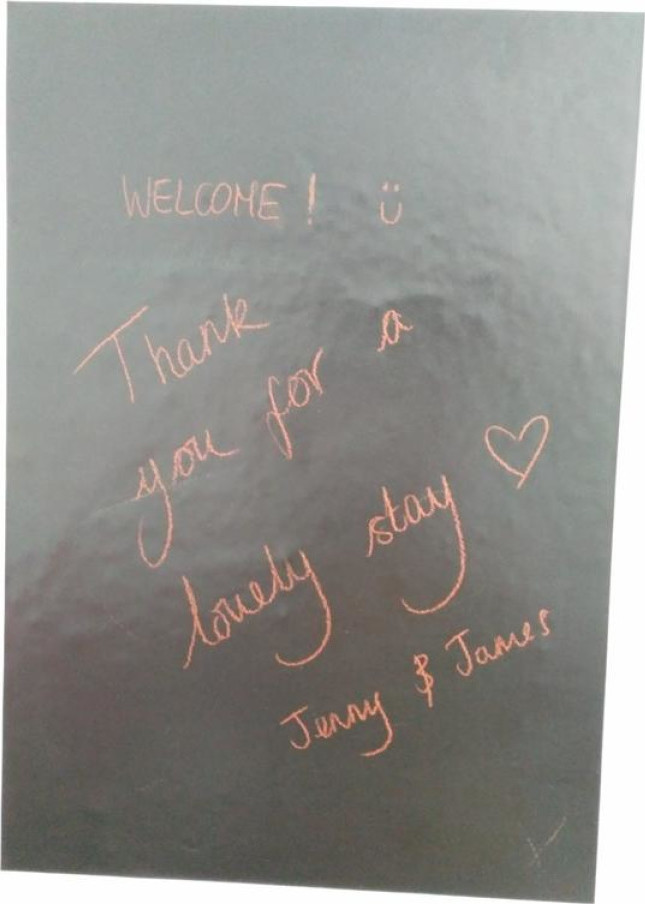 WELCOME! Ü
Thank
you for a
lovely stay ♡
Jenny & James